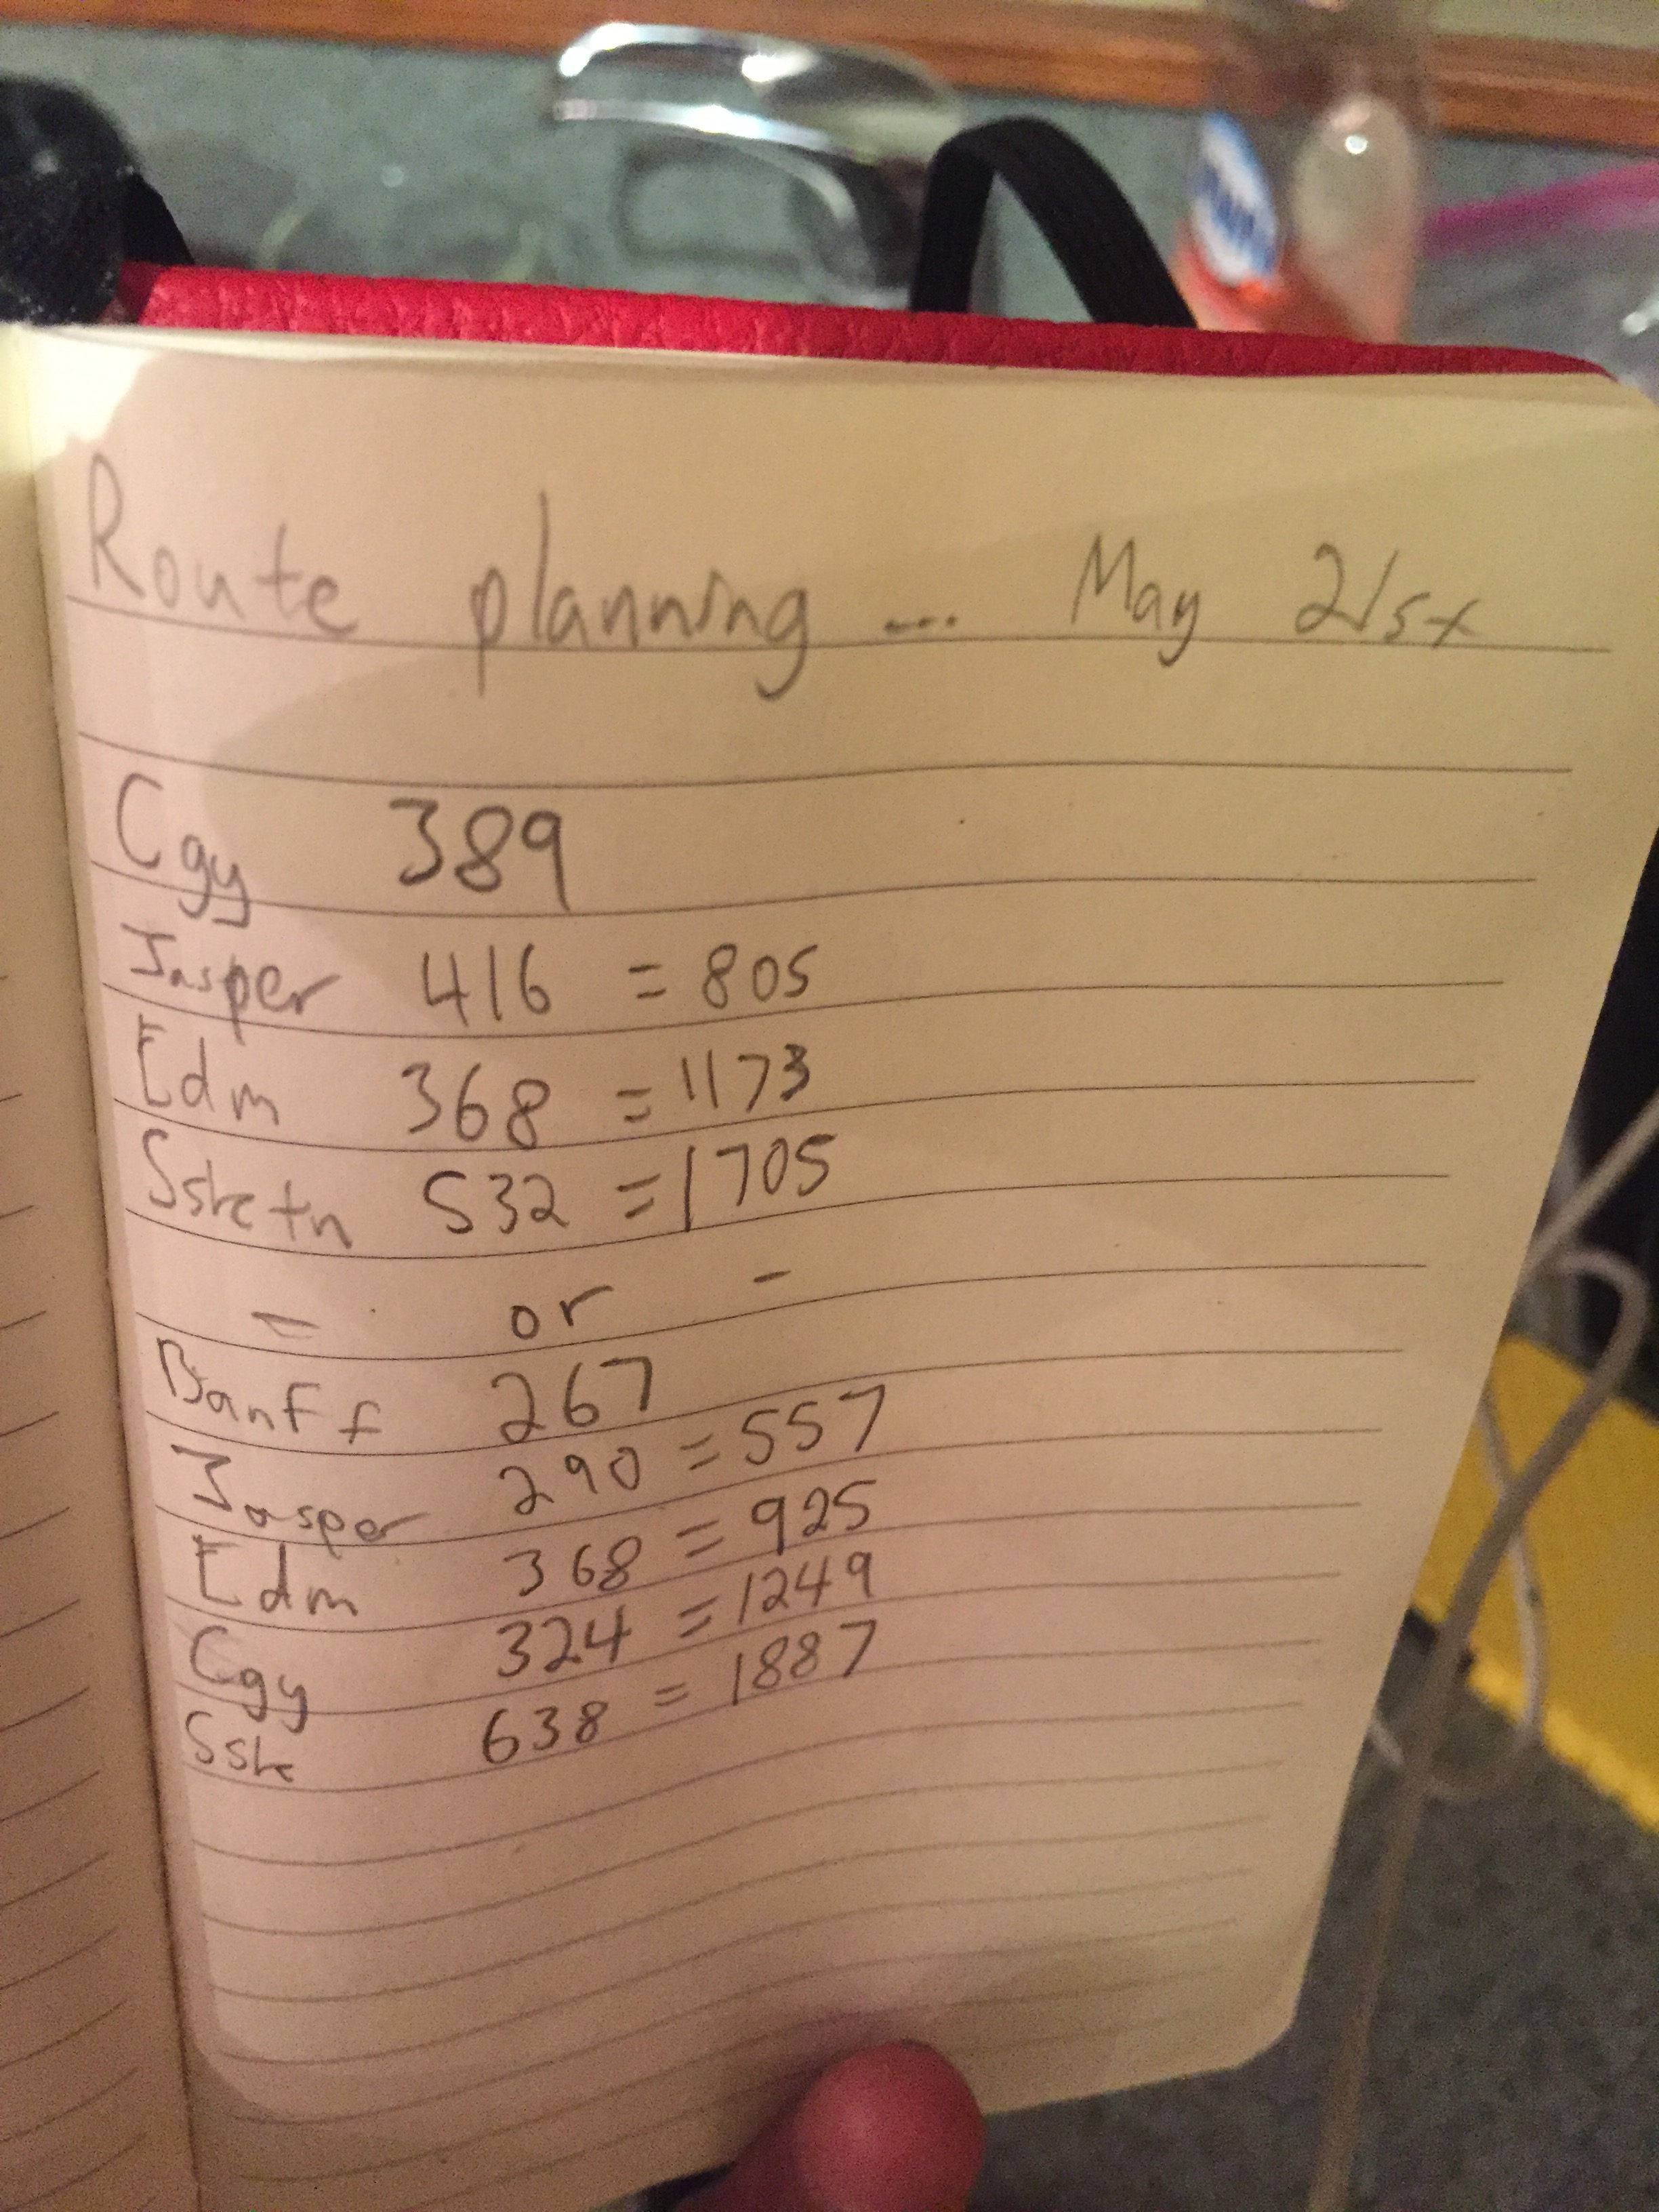 Route planning ... May 21st
Cgy 389
Jasper 416 = 805
Edm 368 = 1173
Ssktn 532 = 1705
- or -
Banff 267
Jasper 290 = 557
Edm 368 = 925
Cgy 324 = 1249
Ssk 638 = 1887